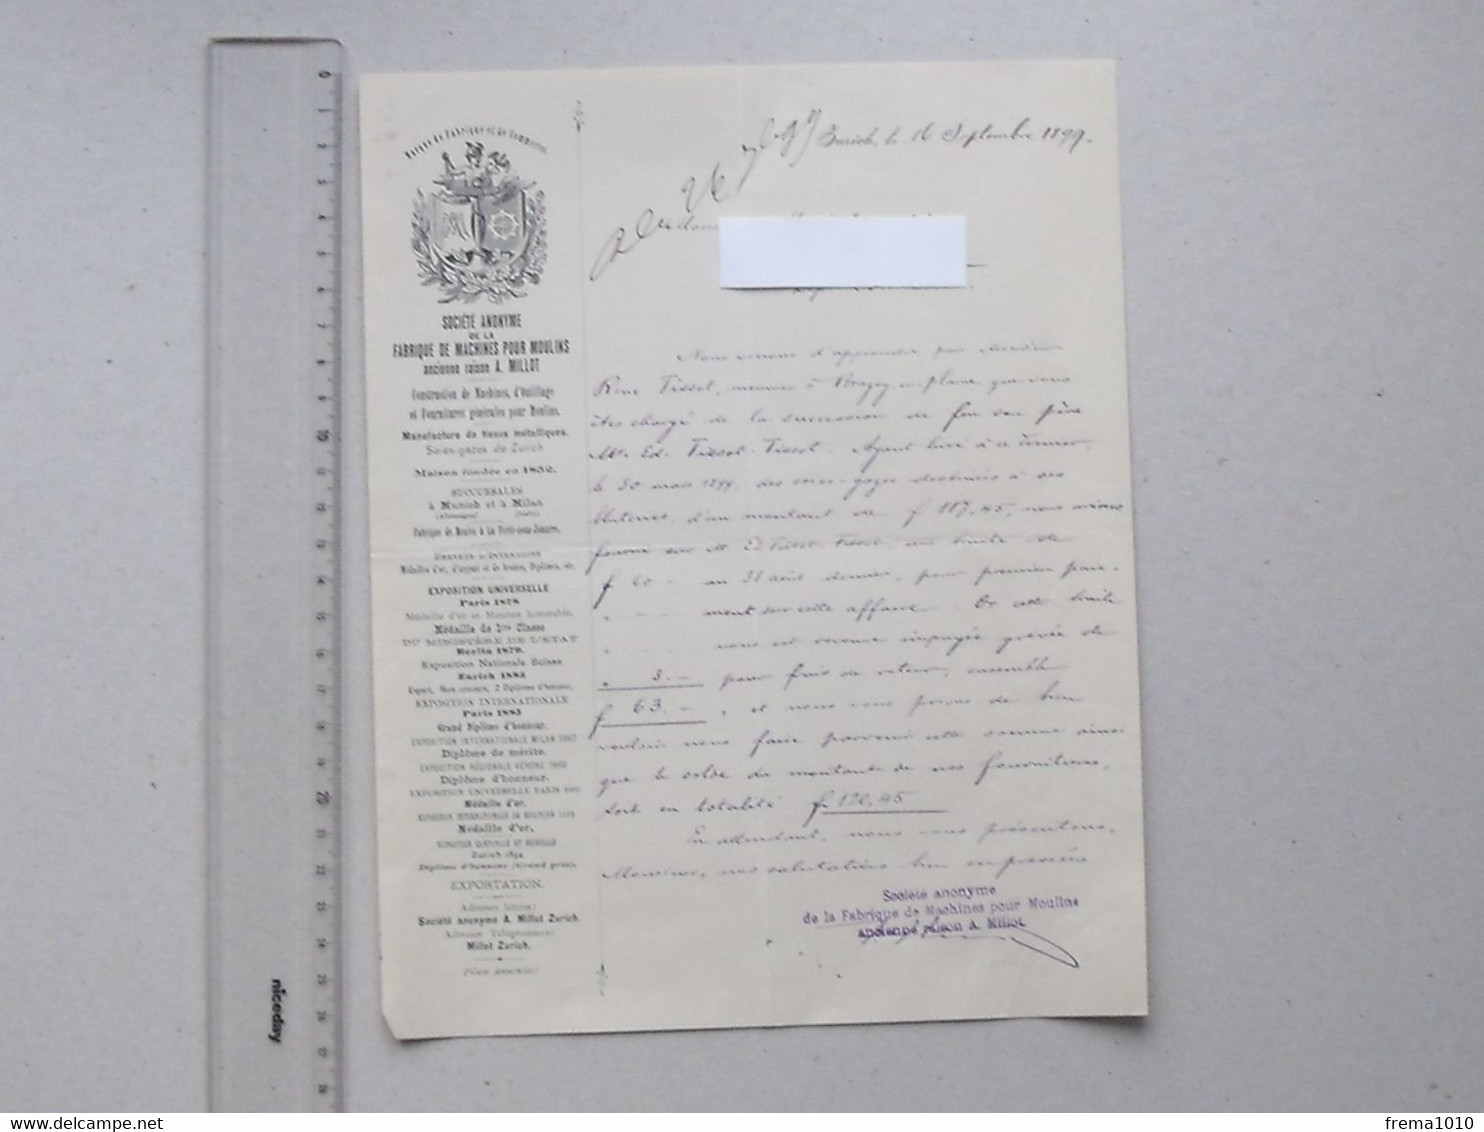 Marque de Fabrique et de Commerce
SOCIÉTÉ ANONYME
DE LA
FABRIQUE DE MACHINES POUR MOULINS
ancienne raison A. MILLOT
Construction de Machines, d'Outillage
et Fournitures générales pour Moulins.
Manufacture de tissus métalliques.
Soies-gazes de Zurich.
Maison fondée en
SUCCURSALES
à Munich et à Milan
(Allemagne) (Italie)
Fabrique de Meules à La Ferté-sous-Jouarre.
BREVETS D'INVENTIONS
Médailles d'or, d'argent et de bronze, Diplômes, etc.
EXPOSITION UNIVERSELLE
Paris 1878
Médaille d'or et Mention honorable.
Médaille de 1re Classe
DU MINISTÈRE DE L'ETAT
Berlin 1879.
Exposition Nationale Suisse
Zurich 1883
Expert, Hors concours, 2 Diplômes d'honneur.
EXPOSITION INTERNATIONALE
Paris
Grand Diplôme d'honneur.
EXPOSITION INTERNATIONALE MILAN 1887
Diplôme de mérite.
EXPOSITION RÉGIONALE VÉRONE
Diplôme d'honneur.
EXPOSITION UNIVERSELLE PARIS
Médaille d'or.
EXPOSITION INTERNATIONALE
Médaille d'or.
Zurich 1894
Diplôme d'honneur (Grand prix).
EXPORTATION.
Adresse lettres:
Société anonyme A. Millot Zurich.
Adresse Télégrammes:
Millot Zurich.
Zurich, le 16 Septembre 1899.
Nous venons d'apprendre par Monsieur
René Tissot, meunier à en plaine que vous
êtes chargé de la succession de feu son père
Mr. Ed. Tissot-Tissot. Ayant livré à ce dernier,
le 30 mars 1899, des soies-gazes destinées à ses
bluteries, d'un montant de f 187,45, nous avions
fourni sur M. Ed. Tissot-Tissot, une traite de
f 60.- au 31 août dernier, pour premier paie-
ment sur cette affaire. Or cette traite
nous est revenue impayée grevée de
3.- pour frais de retour, ensemble
f 63.-, et nous vous prions de bien
vouloir nous faire parvenir cette somme ainsi
que le solde du montant de nos fournitures,
soit en totalité f 190,45
En attendant, nous vous présentons,
Monsieur, nos salutations bien empressées
Société anonyme
de la Fabrique de Machines pour Moulins
ancienne raison A. Millot
0 1 2 3 4 5 6 7 8 9 10 11 12 13 14 15 16 17 18 19 20 21 22 23 24 25 26 27 28
niceday
frema1010